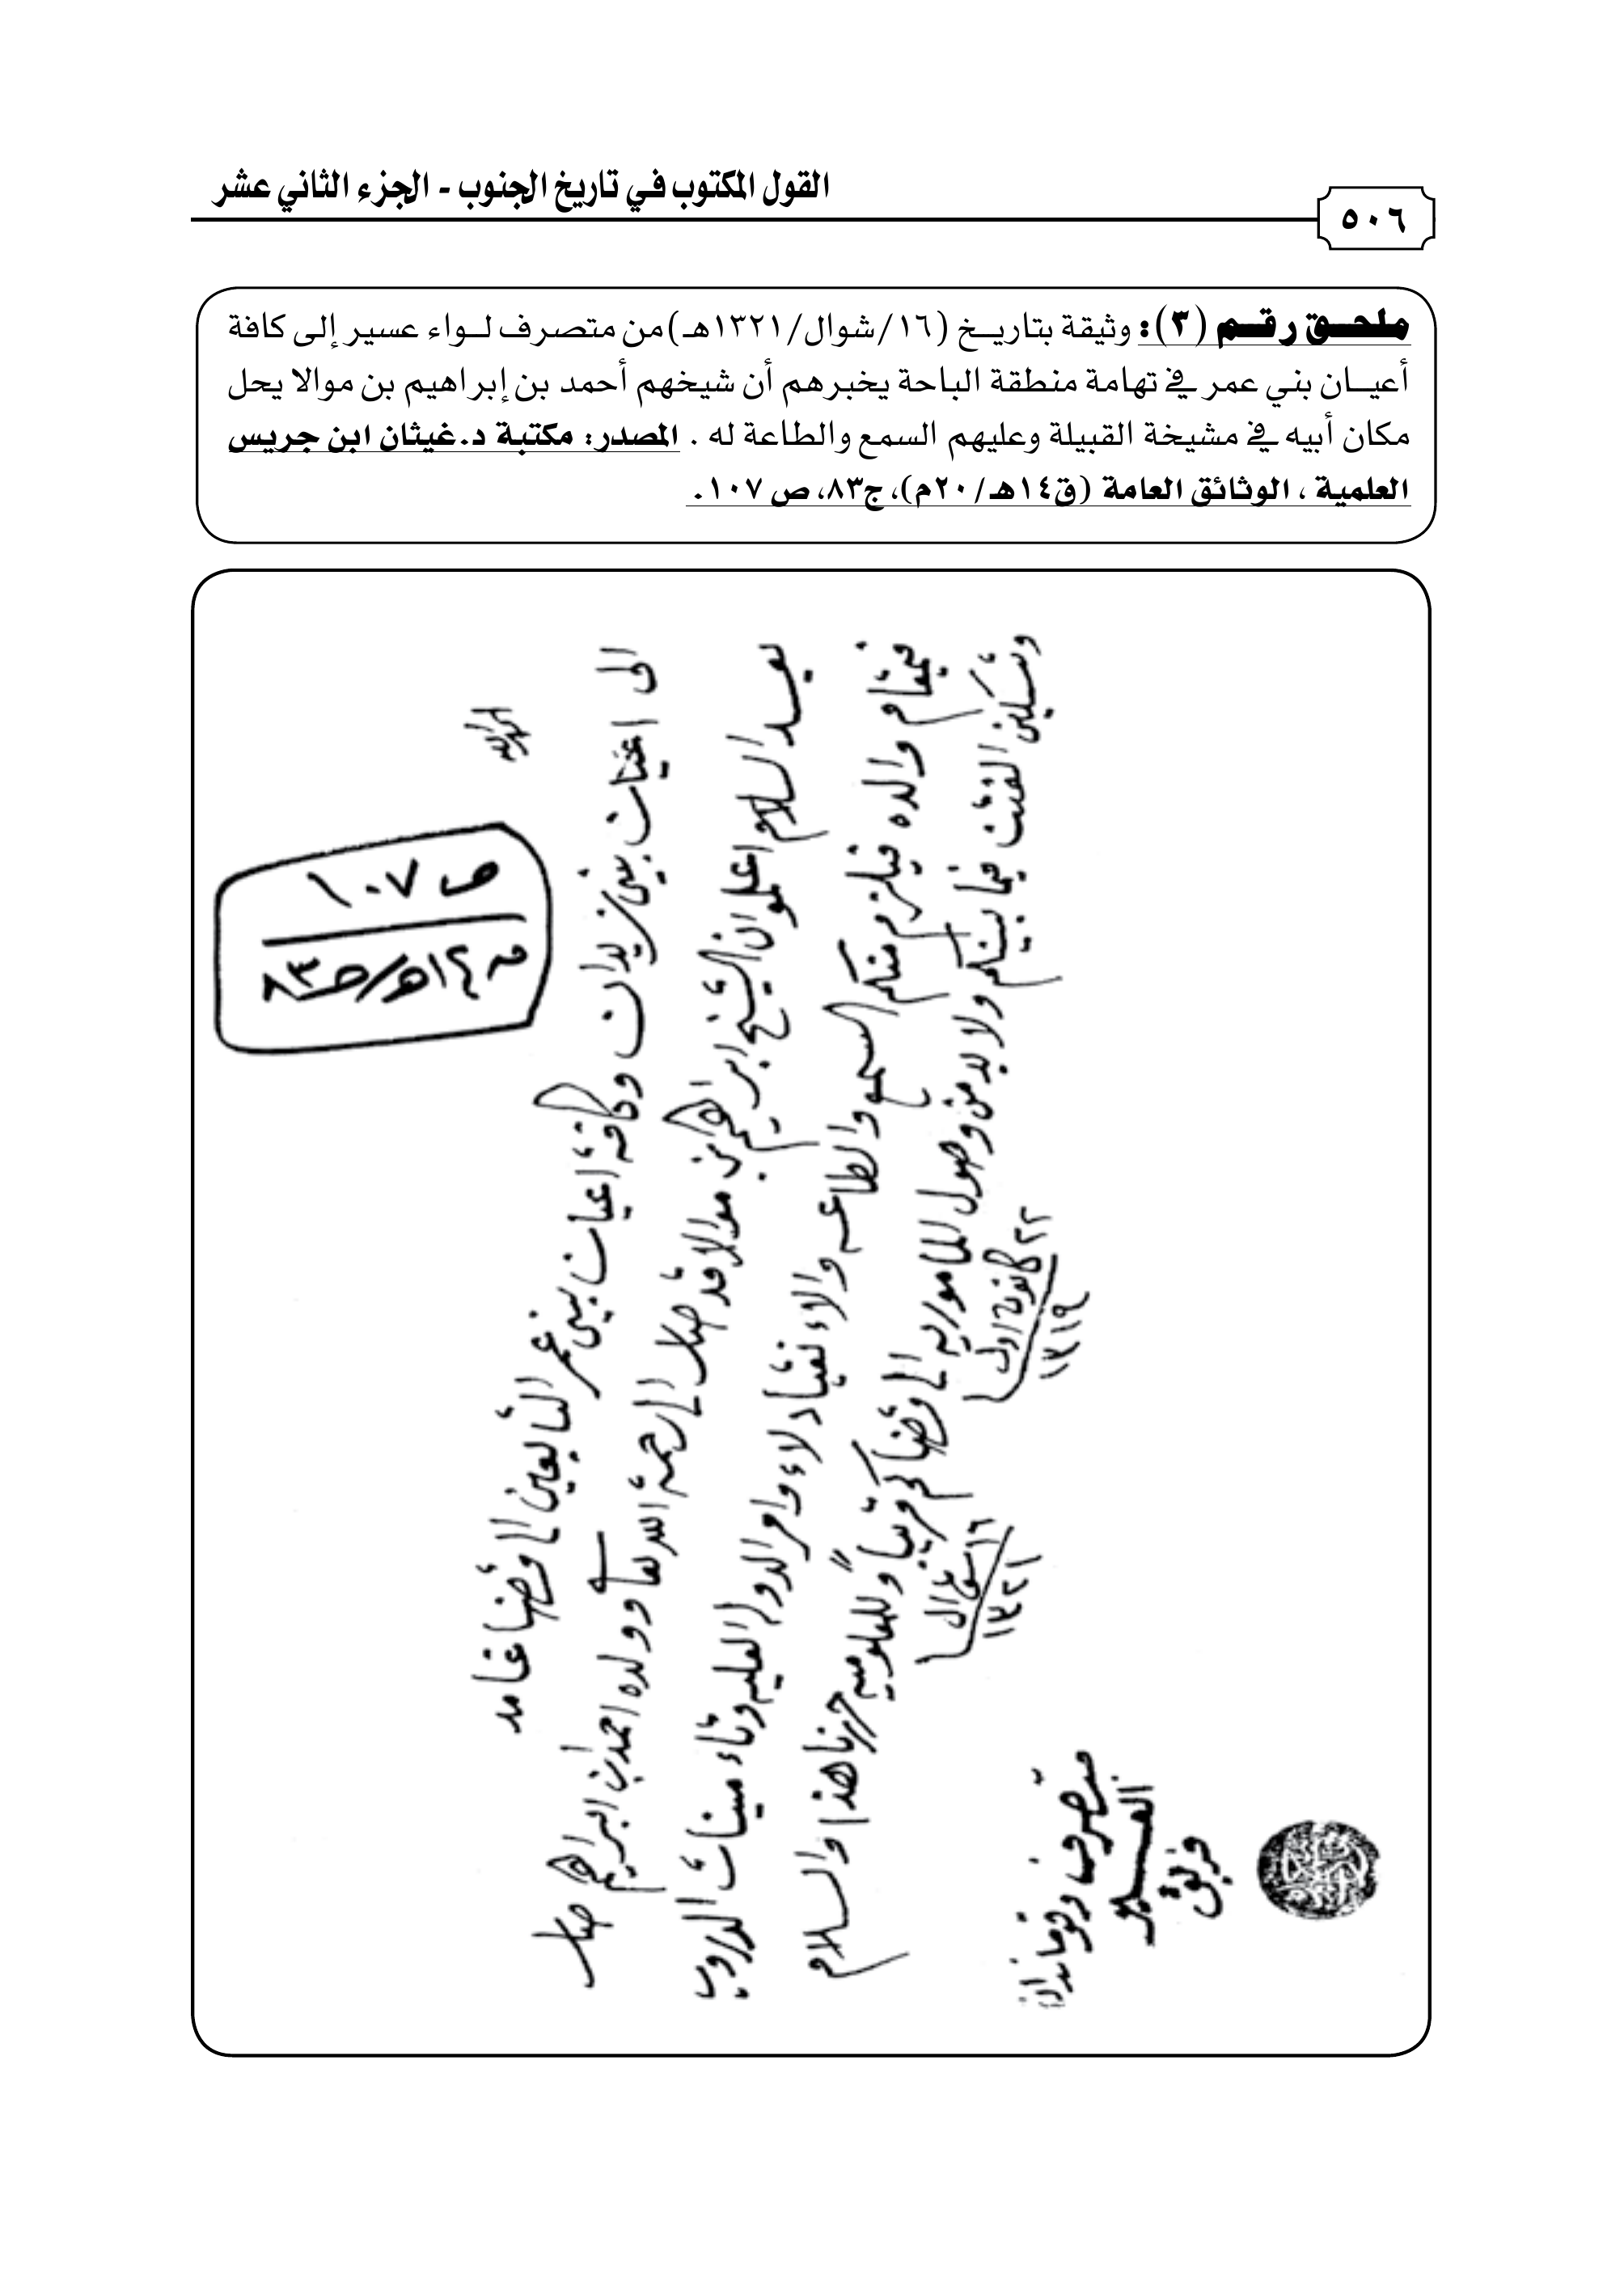 القول المكتوب في تاريخ الجنوب - الجزء الثاني عشر
٥٠٦
ملحق رقم (٣): وثيقة بتاريخ (١٦/شوال/١٣٢١هـ) من متصرف لواء عسير إلى كافة
أعيان بني عمر في تهامة منطقة الباحة يخبرهم أن شيخهم أحمد بن إبراهيم بن موالا يحل
مكان أبيه في مشيخة القبيلة وعليهم السمع والطاعة له . المصدر: مكتبة د.غيثان ابن جريس
العلمية ، الوثائق العامة (ق١٤هـ/٢٠م)، ج٨٣، ص ١٠٧.
الحمد لله
ص ١٠٧
الى اعيان بني زيدان وكافة اعيان بني عمر التابعين الى قضا غامد
بعد السلام اعلموا ان الشيخ ابراهيم بن موالا قد صار الى رحمة الله تعالى وولده احمد ابن ابراهيم صار
فيمقام والده فيلزم منكم السمع والطاعه والاء نقياد لاء وامر الدوله العليه وتاء مينات الدروب
وتسكين الفتن فيما بينكم ولا بد من وصول المامورية الى قضاكم قريباً وللمعلومية حررنا هذا والسلام
٢٢ كانون اول ١٣١٩
١٦ شوال ١٣٢١
متصرف وقوماندان
العسير
فريق